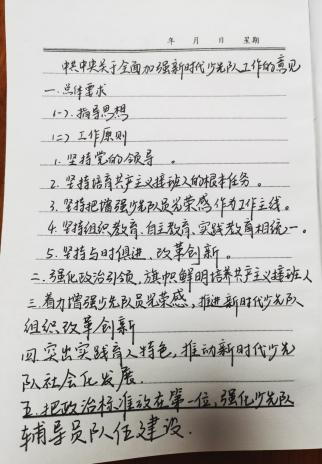 年 月 日 星期
中共中央关于全面加强新时代少先队工作的意见
一.总体要求
(一).指导思想
(二)工作原则
1.坚持党的领导。
2.坚持培育共产主义接班人的根本任务。
3.坚持把增强少先队员光荣感作为工作主线。
4.坚持组织教育、自主教育、实践教育相统一。
5.坚持与时俱进、改革创新。
二.强化政治引领,旗帜鲜明培养共产主义接班人
三.着力增强少先队员光荣感,推进新时代少先队
组织改革创新
四.突出实践育人特色,推动新时代少先
队社会化发展.
五.把政治标准放在第一位,强化少先队
辅导员队伍建设.